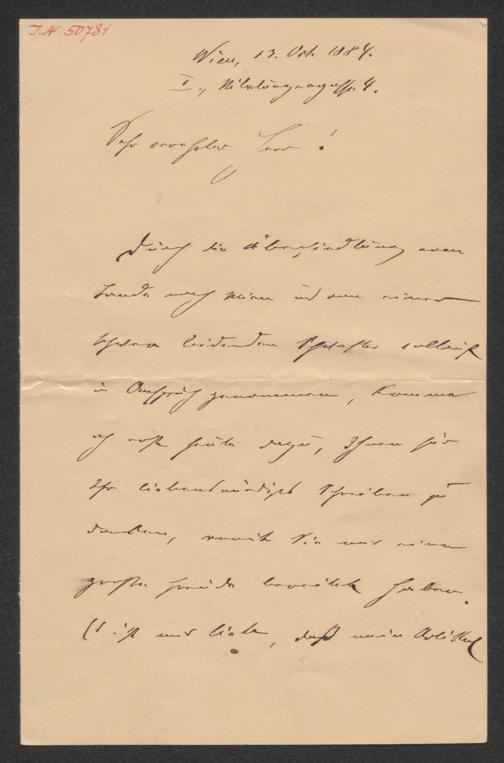 J.N. 50781
Wien, 13. Oct. 1884.
I., Nibelungengasse 4.
Sehr verehrter Herr!
Durch die Übersiedlung vom
Lande nach Wien und von einer
schwer leidenden Schwester vollauf
in Anspruch genommen, komme
ich erst heute dazu, Ihnen für
Ihr liebenswürdiges Schreiben zu
danken, womit Sie mir eine
große Freude bereitet haben.
Es ist mir lieb, daß mein Artikel